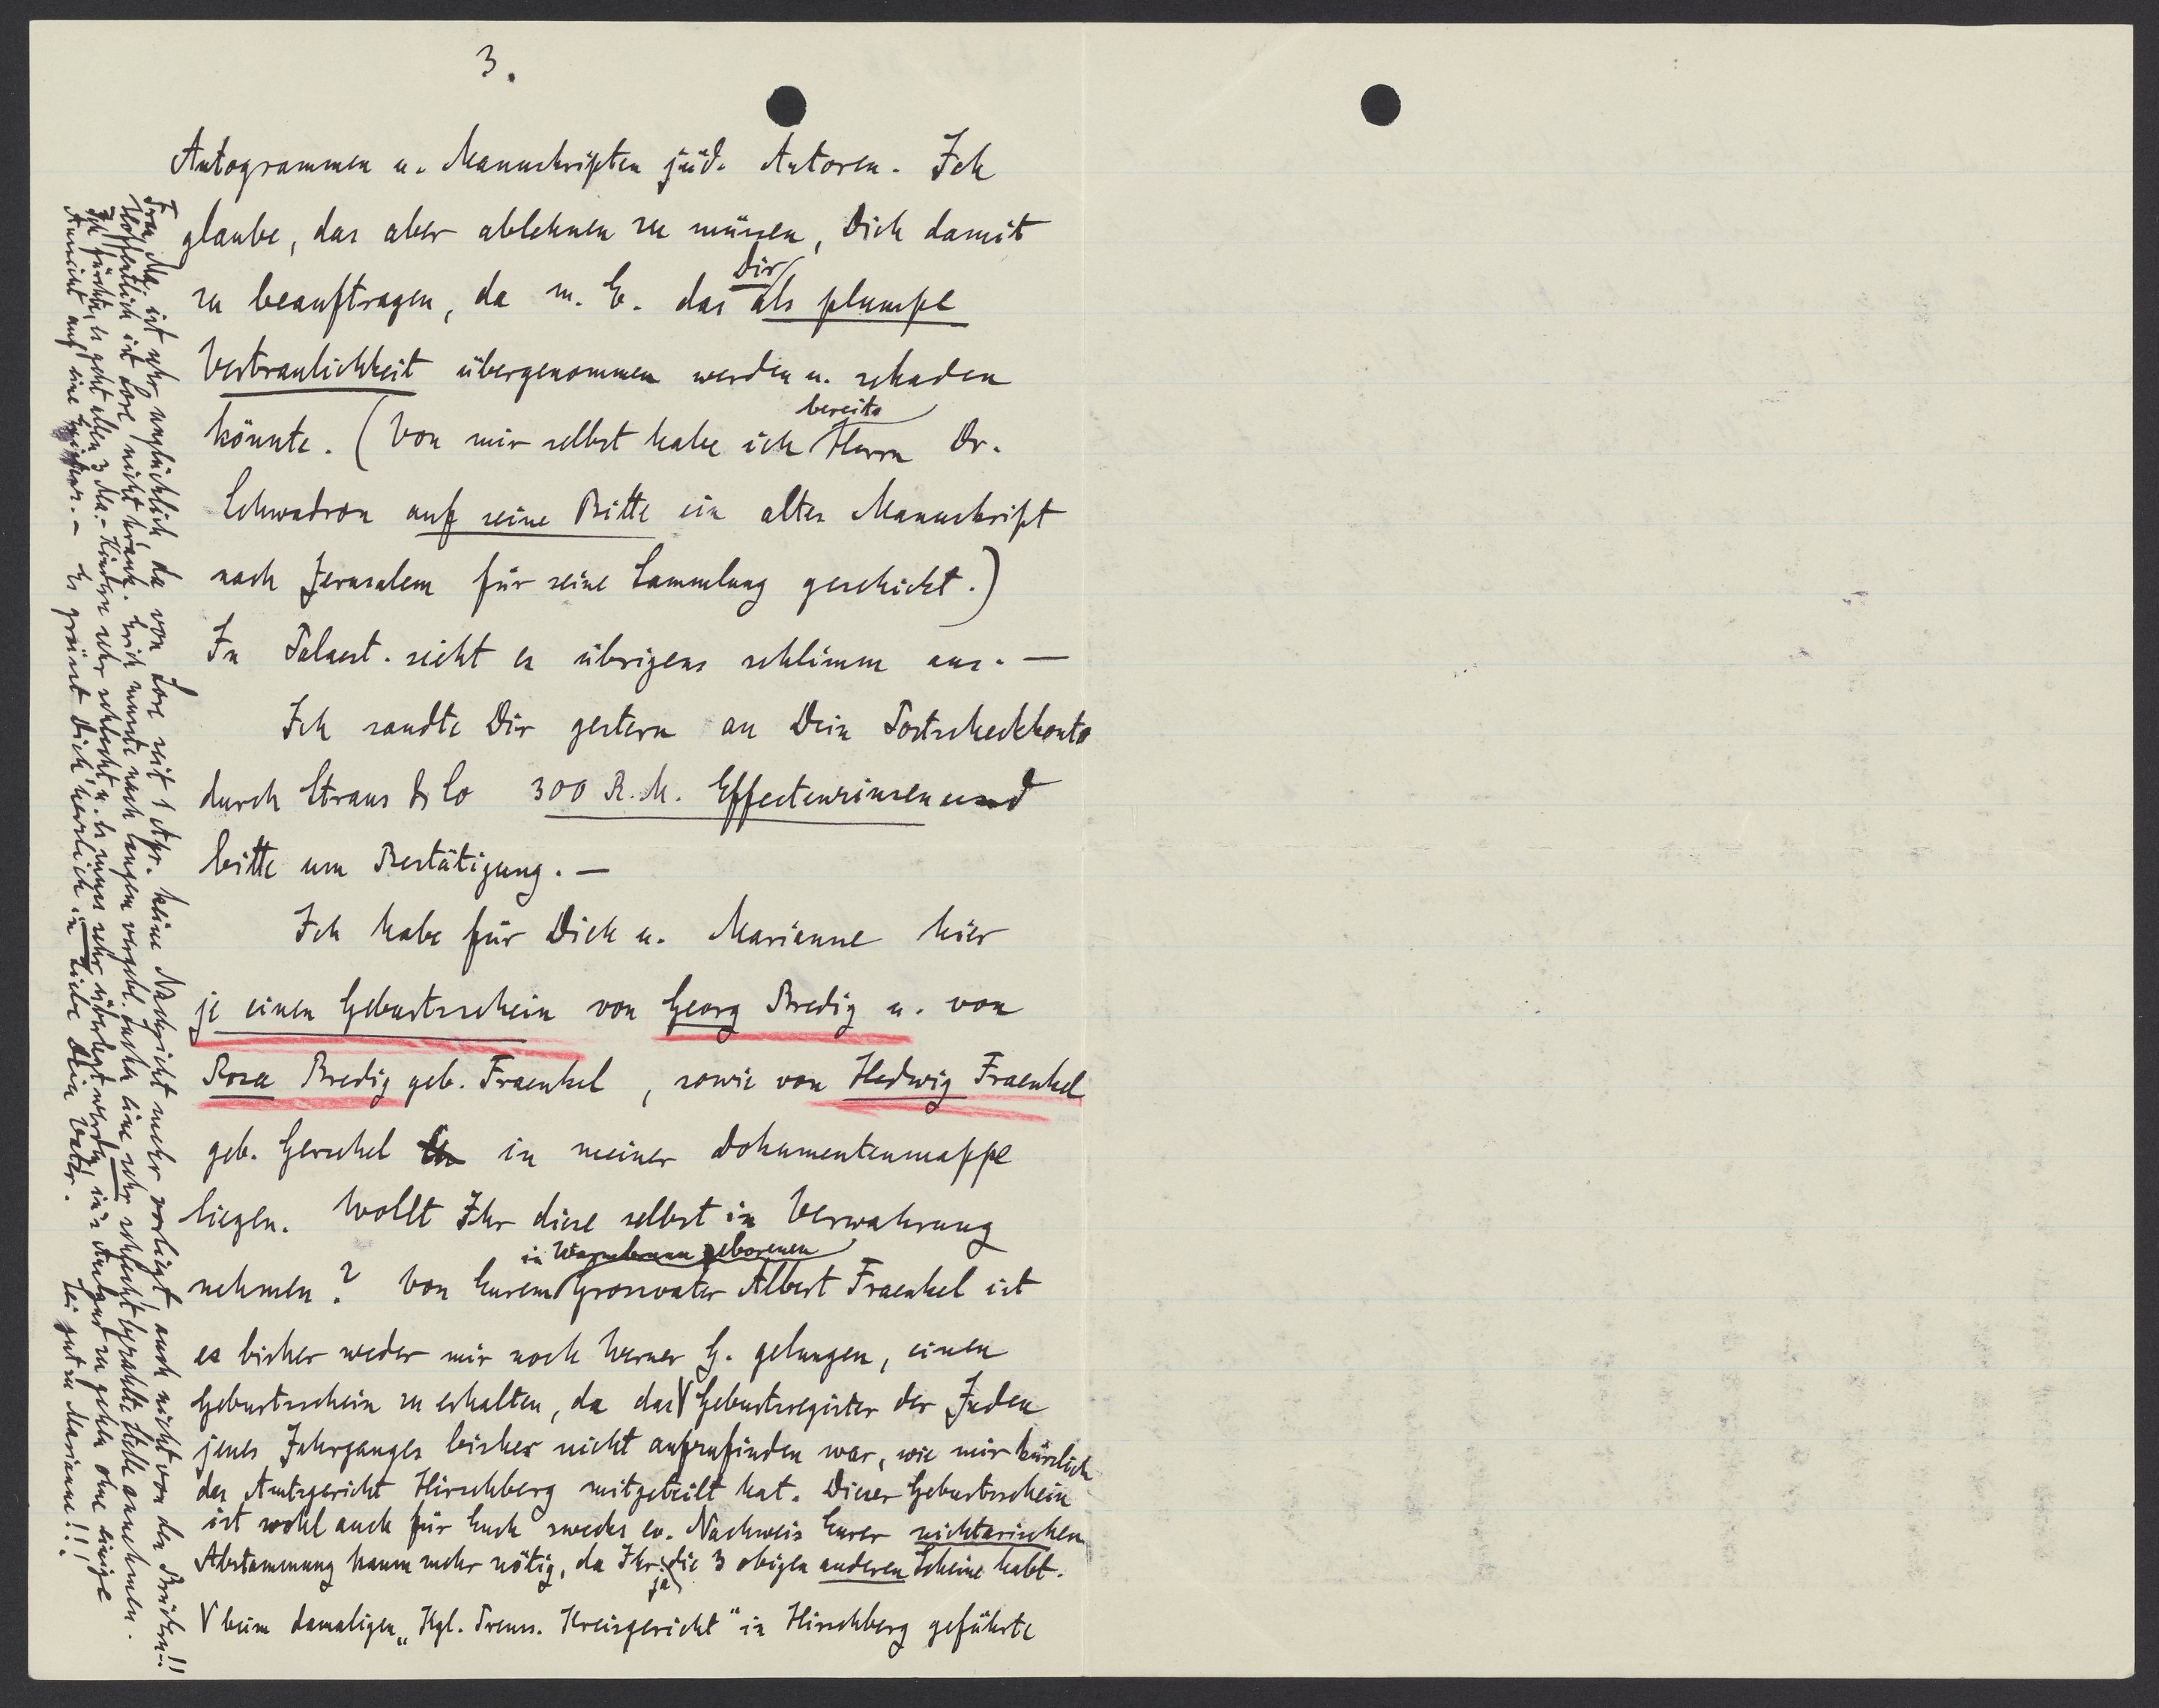 3.
Autogrammen u. Manuskripten jüd. Autoren. Ich
glaube, das aber ablehnen zu müssen, Dich damit
zu beauftragen, da m. E. das Dir als plumpe
Vertraulichkeit übergenommen werden u. schaden
könnte. (Von mir selbst habe ich bereits Herrn Dr.
Schwadron auf seine Bitte ein altes Manuskript
nach Jerusalem für seine Sammlung geschickt.)
In Palaest. sieht es übrigens schlimm aus. —
Ich sandte Dir gestern an Dein Postscheckkonto
durch Straus & Co 300 R.M. Effectenzinsen und
bitte um Bestätigung. —
Ich habe für Dich u. Marianne hier
je einen Geburtsschein von Georg Bredig u. von
Rosa Bredig geb. Fraenkel, sowie von Hedwig Fraenkel
geb. Gerschel in meiner Dokumentenmappe
liegen. Wollt Ihr diese selbst in Verwahrung
nehmen? Von Eurem in Warmbrunn geborenen Grossvater Albert Fraenkel ist
es bisher weder mir noch Werner G. gelungen, einen
Geburtsschein zu erhalten, da das V Geburtsregister der Juden
jenes Jahrganges bisher nicht aufzufinden war, wie mir kürzlich
das Amtsgericht Hirschberg mitgeteilt hat. Dieser Geburtsschein
ist wohl auch für Euch zwecks ev. Nachweis Eurer nichtarischen
Abstammung kaum mehr nötig, da Ihr ja die 3 obigen anderen Scheine habt.
V beim damaligen „Kgl. Preuss. Kreisgericht" in Hirschberg geführte
Frau Ma. ist sehr unglücklich, da von Lore seit 1 Apr. keine Nachricht mehr vorliegt, auch nicht von den Brüdern!!
Hoffentlich ist Lore nicht krank. Erich musste nach langem vergebl. Suchen eine sehr schlecht bezahlte Stelle annehmen.
Ich fürchte, es geht allen 3 Ma.-Kindern sehr schlecht u. es muss sehr überlegt werden, in's Ausland zu gehen ohne einige
Aussicht auf eine Existenz. — Es grüsst Dich herzlich in Liebe Dein Vater. Sei gut zu Marianne!!